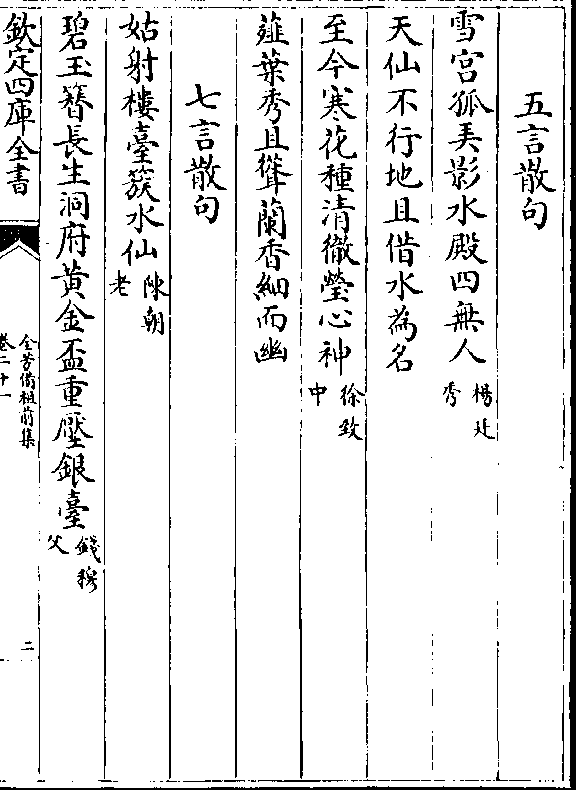 五言散句
雪宮孤弄影水殿四無人楊廷秀
天仙不行地且借水為名
至今寒花種清徹瑩心神徐致中
薤葉秀且聳蘭香細而幽
七言散句
姑射樓臺簇水仙陳朝老
碧玉簪長生洞府黃金盃重壓銀臺錢穆父
欽定四庫全書
全芳備祖前集
卷二十一
二